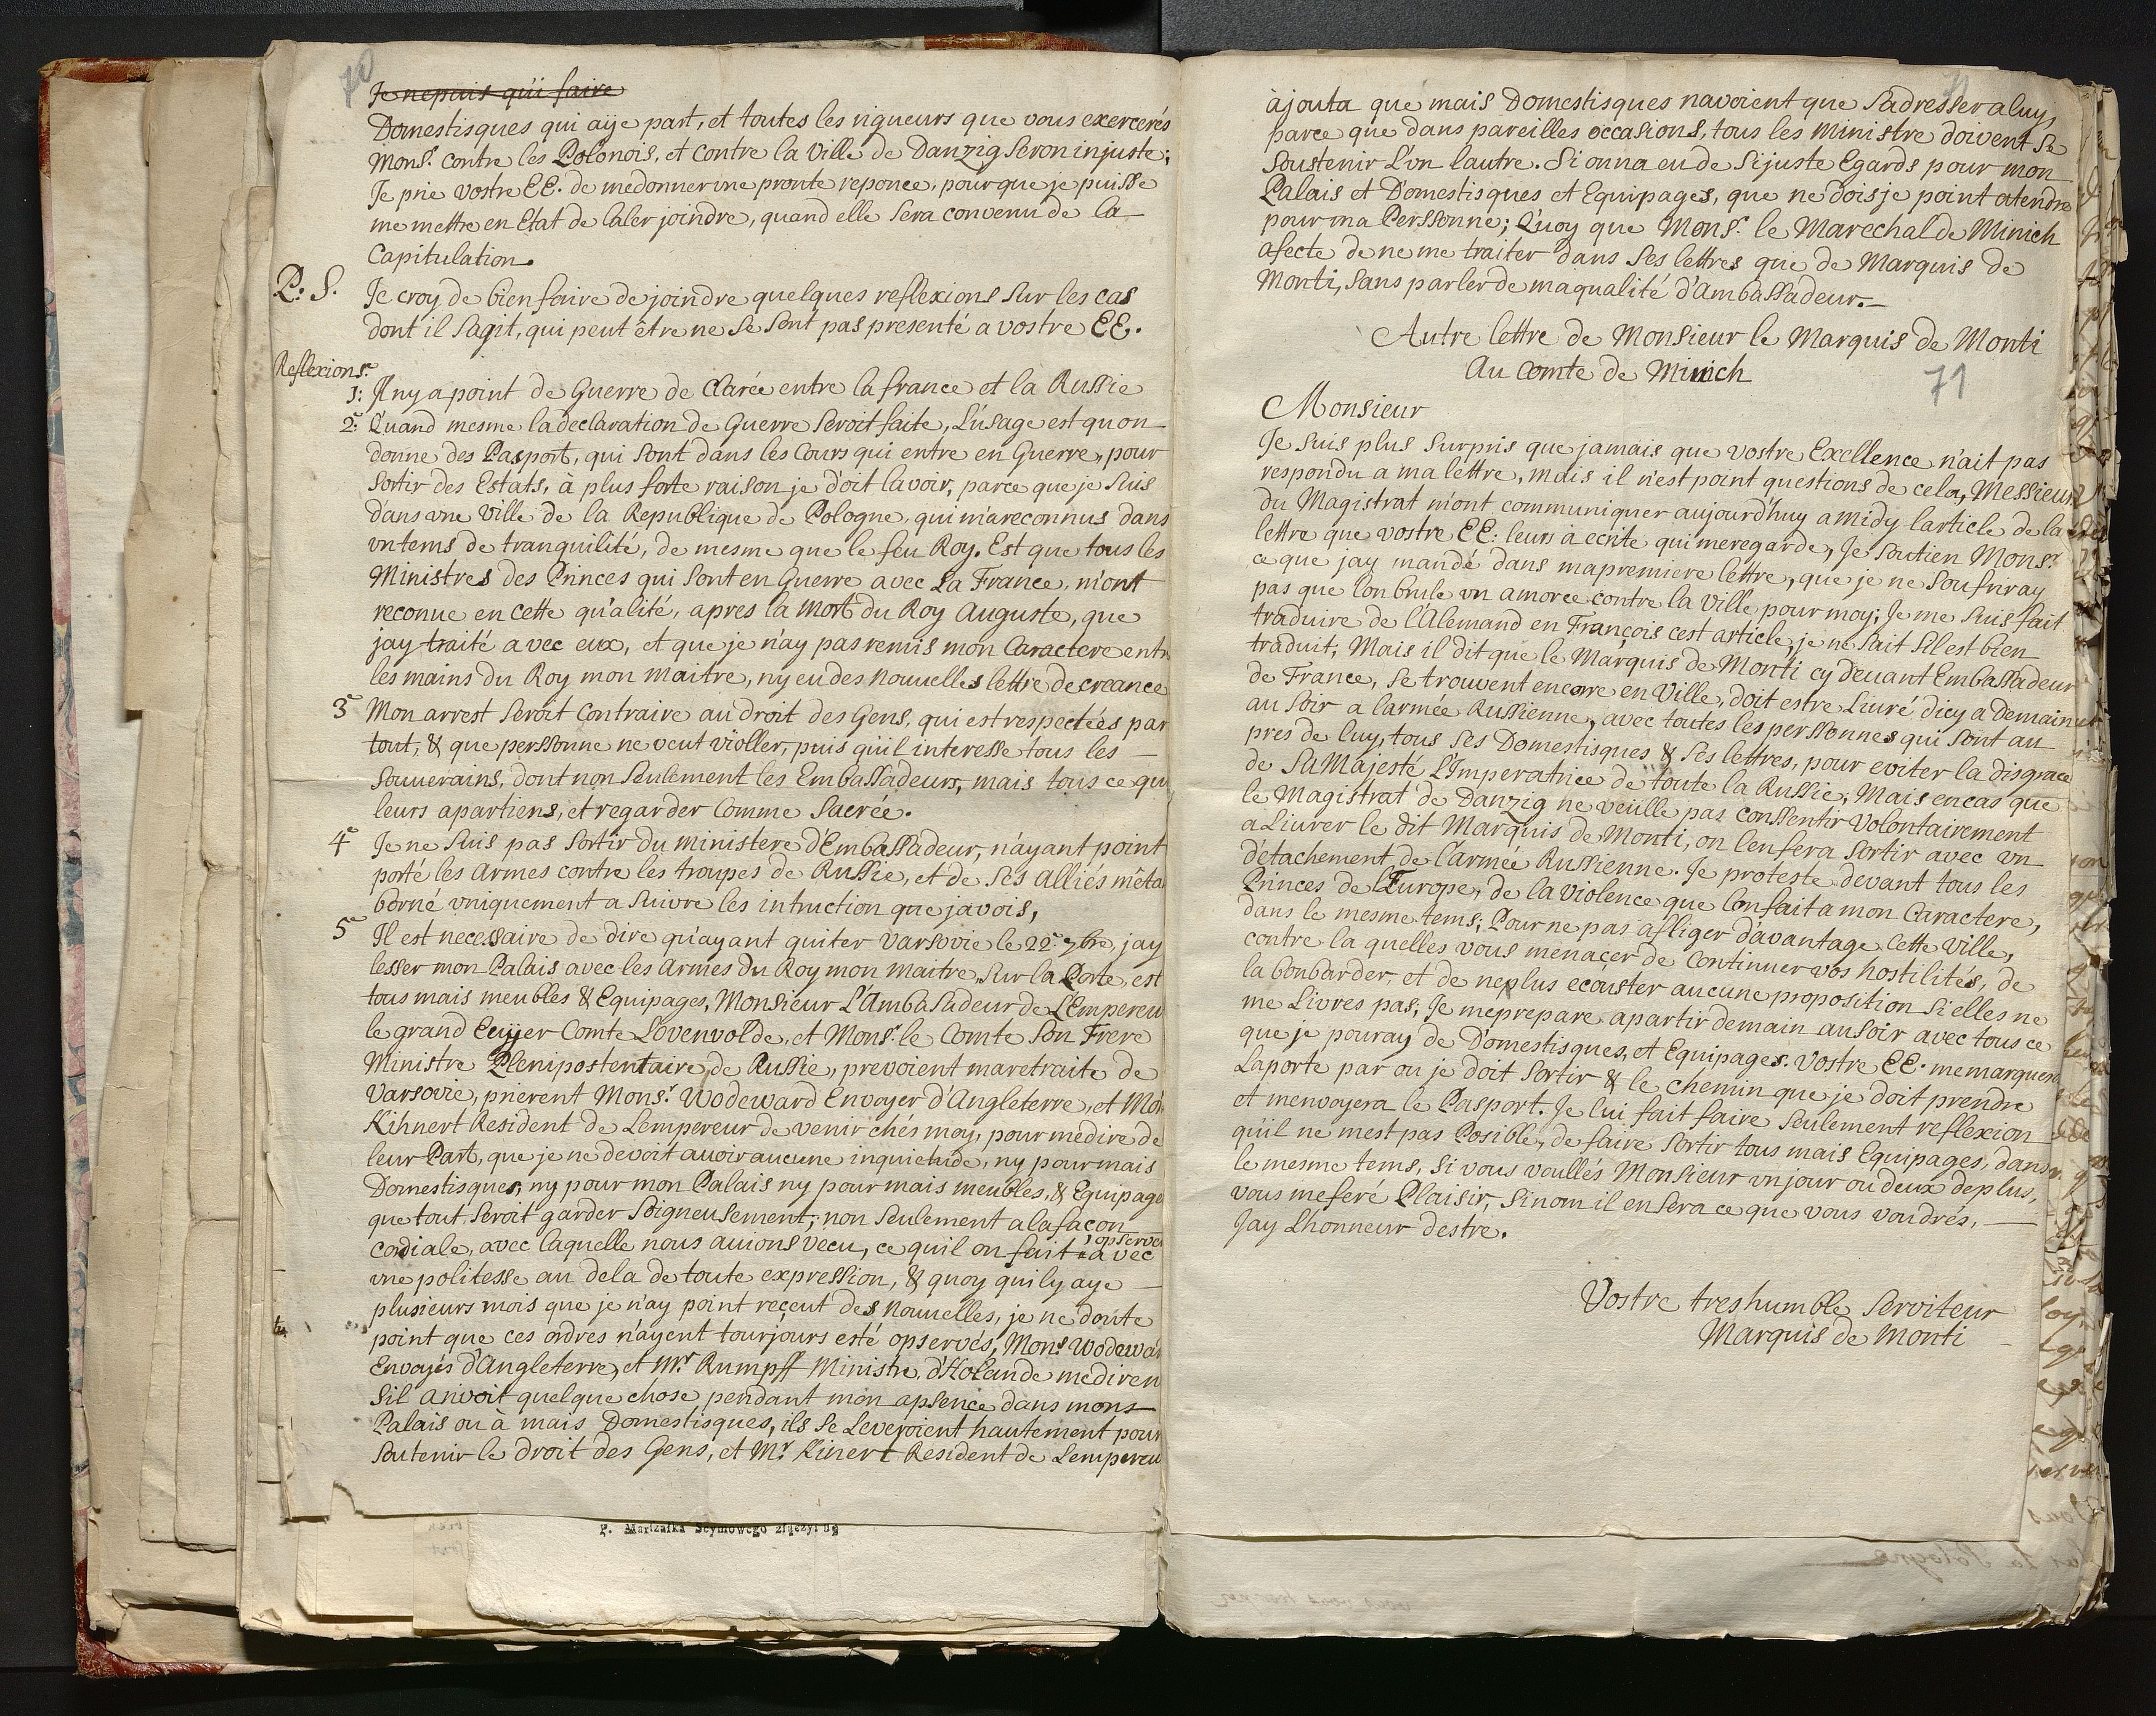 70
Je ne puis qui faire
Domestisques qui aÿe part, et toutes les rigueurs que vous exercerés
Mons.r contre les Polonois, et contre la Ville de Danzig Seron injuste;
Je prie vostre EE. de me donner une pronte reponce, pour que je puisse
me mettre en Etat de laler joindre, quand elle Sera convenu de la
Capitulation.
P: S. Je croy de bien faire de joindre quelques reflexions Sur les cas
dont il Sagit, qui peut être ne se Sont pas presenté a vostre EE.
Reflexions.
1: Il ny a point de Guerre de Clarée entre la france et la Russie
2: Quand mesme la declaration de Guerre Seroit faite, L'usage est quon
donne des Pasport, qui Sont dans les Cours qui entre en Guerre, pour
Sortir des Estats, à plus forte raison je d'oit lavoir, parce que je Suis
dans une Ville de la Republique de Pologne, qui m'a reconnus dans
un tems de tranquilité, de mesme que le feu Roy. Est que tous les
Ministres des Princes qui Sont en Guerre avec La France, m'ont
reconue en cette qu'alité, apres la Mort du Roy Auguste, que
jay traité avec eux, et que je n'ay pas remis mon Caractere entr
les mains du Roy mon maitre, ny eu des Nouvelles lettre de creance
3 Mon arrest Seroit Contraire au droit des Gens, qui est respectées par
tout, & que perssonne ne veut violler, puis qu'il interesse tous les
Souverains, dont non Seulement les Embassadeurs, mais tous ce qui
leurs apartiens, et regarder Comme Sacrée.
4 Je ne Suis pas Sortir du ministere d'Embassadeur, n'ayant point
porté les Armes contre les troupes de Russie, et de Ses Alliés m'éta
borné uniquement a Suivre les intruction que javois,
5 Il est necessaire de dire qu'ayant quiter Varsovie le 22e 7bre, jay
lesser mon Palais avec les Armes du Roy mon maitre, Sur la Porte, est
tous mais meubles & Equipages, Monsieur L'Ambasadeur de L'Empereu
le grand Ecuÿer Comte Lovenvolde, et Mons.r le Comte Son Frere
Ministre Plenipostentaire, de Russie, prevoient ma retraite de
Varsovie, prierent Mons.r Wodeward Envoyer d'Angleterre, et Mon
Kihnert Resident de Lempereur de venir chés moy, pour me dire de
leur Part, que je ne devoit avoir aucune inquietude, ny pour mais
Domestisques, ny pour mon Palais ny pour mais meubles, & Equipage
que tout Seroit garder Soigneusement; non Seulement a la façon
cordiale, avec laquelle nous avions vecu, ce quil on fait opserver avec
une politesse au dela de toute expression, & quoy quily aye
plusieurs mois que je n'ay point reçeut des Nouvelles, je ne doute
point que ces ordres n'ayent tourjours esté opservés, Mons.r Wodewar
Envoyés d'Angleterre, et M.r Rumpff Ministre d'Holande me diren
Sil arivoit quelque chose pendant mon apsence dans mons
Palais ou à mais Domestisques, ils Se Leveroient hautement pour
Soutenir le droit des Gens, et M.r Kinert Resident de Lempereu
P. Marszałka Seymowego złączył się
71
àjouta que mais Domestisques navoient que Sadresser a luy,
parce que dans pareilles occasions, tous les Ministre doivent Se
Soustenir L'un lautre. Si on na eu de Si juste Egards pour mon
Palais et Domestisques et Equipages, que ne dois je point atendre
pour ma Perssonne; Quoy que Mons.r le Marechal de Minich
afecte de ne me traiter dans Ses lettres que de Marquis de
Monti, Sans parler de ma qualité d'Ambassadeur.
Autre lettre de Monsieur le Marquis de Monti
Au Comte de Minich
71
Monsieur
Je Suis plus Surpris que jamais que vostre Excellence n'ait pas
respondu a ma lettre, mais il n'est point questions de cela, Messieurs
du Magistrat m'ont communiquer aujourd'huy a midy l'article de la
lettre que vostre EE: leurs à ecrite qui me regarde, Je Soutien Mons.r
ce que jay mandé dans ma premiere lettre, que je ne Soufriray
pas que l'on brule un amorce contre la Ville pour moy; Je me Suis fait
traduire de l'Alemand en François cest article, je ne Sait Sil est bien
traduit; Mais il dit que le Marquis de Monti cy devant Embassadeur
de France, Se trouvent encorre en Ville, doit estre Livré dicy a Demain
au Soir a l'armée Russienne, avec toutes les perssonnes qui Sont au
pres de luy, tous Ses Domestisques & Ses lettres, pour eviter la disgrace
de Sa Majesté L'Imperatrice de toute la Russie; Mais en cas que
le Magistrat de Danzig ne veüille pas Conssentir Volontairement
a Livrer le dit Marquis de Monti, on l'en fera Sortir avec un
détachement de l'armée Russienne. Je protéste devant tous les
Princes de l'Europe, de la violence que l'on fait a mon Caractere,
dans le mesme tems; Pour ne pas afliger d'avantage Cette Ville,
contre la quelles vous menaçer de Continuer vos hostilités, de
la bonbarder, et de ne plus ecouster aucune proposition Si elles ne
me Livres pas; Je me prepare a partir demain au Soir avec tous ce
que je pouray de Domestisques, et Equipages. Vostre EE. me marquera
Laporte par ou je doit Sortir & le chemin que je doit prendre
et menvoyera le Pasport. Je lui fait faire Seulement reflexion
qu'il ne mest pas Posible, de faire Sortir tous mais Equipages, dans
le mesme tems, Si vous voullés Monsieur un jour ou deux de plus,
vous me feré Plaisir, Sinom il en Sera ce que vous voudrés,
Jay L'honneur destre.
Vostre tres humble Serviteur
Marquis de Monti